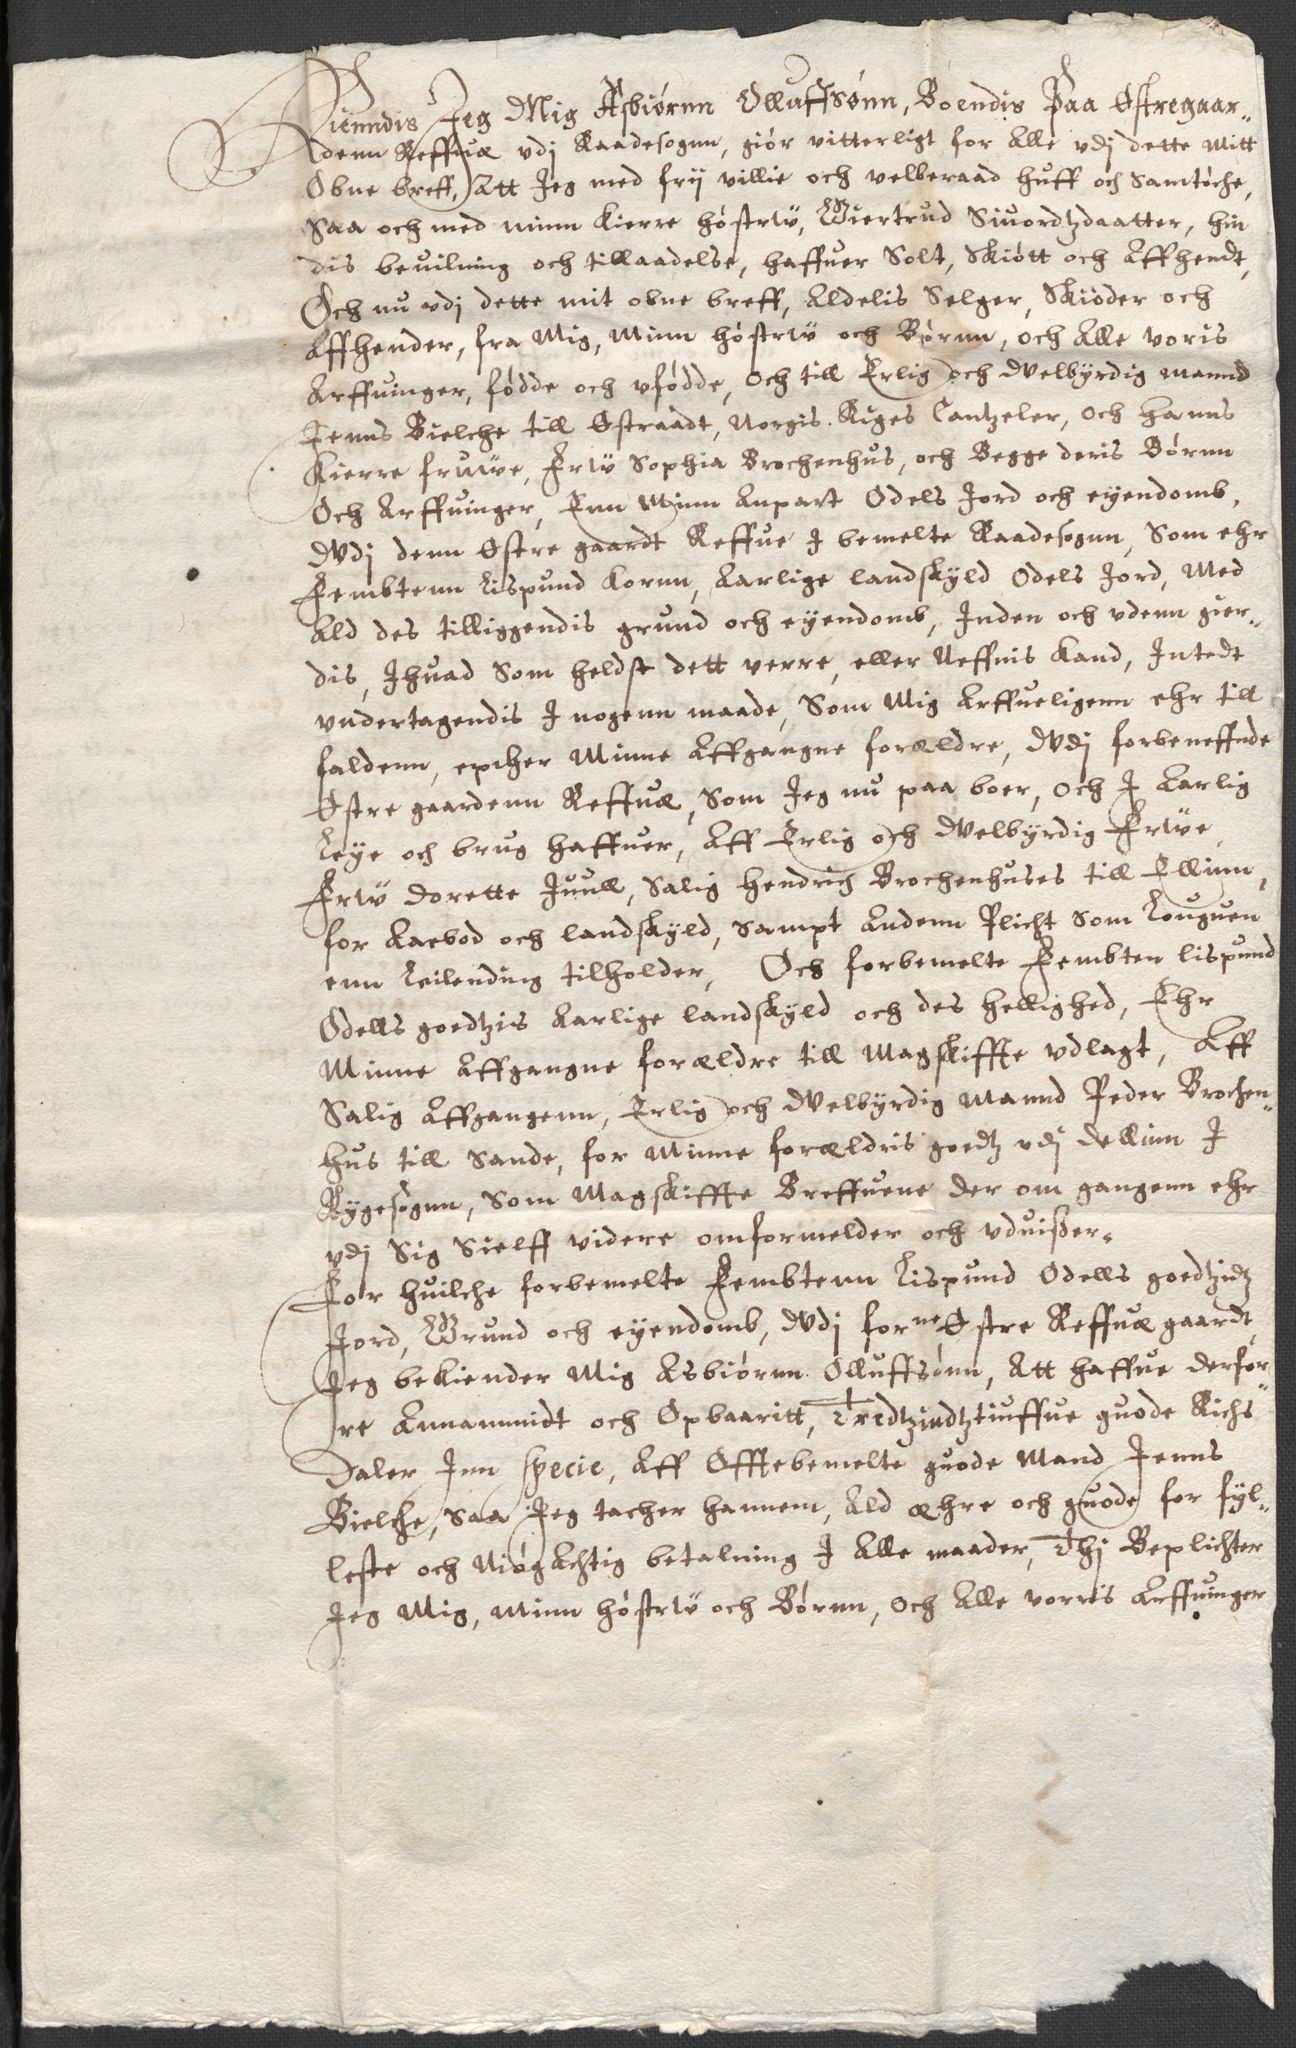 Kienndis Jeg Mig Asbiørnn Olluffsønn, Boendis Paa Østregaar-
denn Reffuæ vdj Raadesognn, giør vitterligt for Alle vdj dette Mitt
Obne breff, Att Jeg med frij villie och velberaad huff och Samtøche,
Saa och med minn kierre høstrw, Giertrud Siuordtzdaatter, hin
dis beuilning och tilladelse, haffuer Solt, Skiøtt och Affhendt,
Och nu vdj dette mit obne breff, Aldelis Selger, Skiøder och
Affhender, fra Mig, Minn høstrw och Børnn, och Alle voris
Arffuinger, fødde och vfødde, och till Erlig och Welbyrdig mannd
Jenns Bielche till Østraadt, Norgis Riges Cantzeler, och hanns
kierre fruwe, Frw Sophia Brochenhus, och Begge deris Børnn
Och Arffuinger, Enn Minn Anpart Odels Jord och eyendomb,
Wdj denn Østre gaardt Reffue J bemelte Raadesognn, Som ehr
Fembtenn Lispund kornn, Aarlige landskyld Odels Jord, Med
Ald des tilliggendis grund och eyendomb, Inden och vdenn gier-
dis, Jhuad Som heldst dett verre, eller Neffnis kand, Intedt
vndertagendis J nogenn maade, Som Mig Arffueligenn ehr till
faldenn, epther Minne Affgangne forældre, Wdj forbeneffnde
Østre gaardenn Reffuæ, Som Jeg nu paa boer, och J Aarlig
Leye och brug haffuer, Aff Erlig och Welbyrdig Frwe,
Frw Dorette Juull, Salig Hendrich Brochenhuses till Ellinn,
for Aaebod och landskyld, Sampt Andenn Plicht Som Louguen
enn Leilending tilholder, Och forbemelte Fembten lispund
Odells goedtzis Aarlige landskyld och des hellighed, Ehr
Minne Affgangne forældre till Magskiffte vdlagt, Aff
Salig Affgangenn, Erlig och Welbyrdig Mannd Peder Brochen-
hus till Sande, for Minne forældris goedtz vdj Dellinn J
Rygesognn, Som Magskiffte Breffuene der om gangenn ehr
vdj Sig Sielff videre omformelder och vduisser.
For huilche forbemelte Fembtenn Lispund Odells goedtzidtz
Jord, Grund och eyendomb, Wdj forne Østre Reffuæ gaardt,
Jeg bekiender Mig Asbiørnn Olluffsønn, Att haffue derfor
re Annammidt och Opbaaritt, Tredtzindtztiuffue guode Richs
Daler Inn Specie, Aff Offtebemelte guode Mand Jenns
Bielche, Saa Jeg tacher hannem, Ald æhre och guode for fyl-
leste och Niøgachtig betalning J Alle maader, Thj Beplichter
Jeg Mig, Minn høstrw och Børnn, och Alle vorris Arffuinger